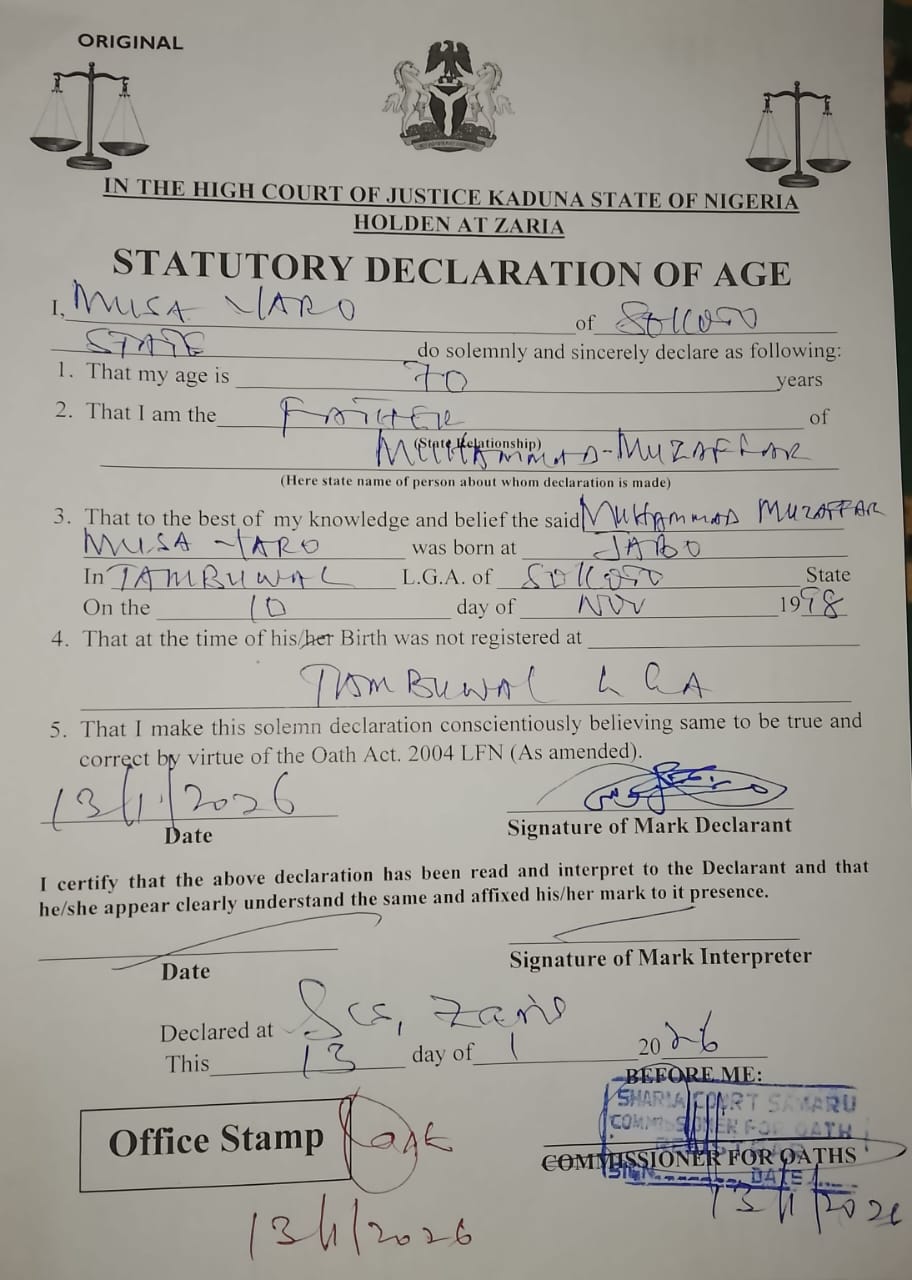 ORIGINAL
IN THE HIGH COURT OF JUSTICE KADUNA STATE OF NIGERIA
HOLDEN AT ZARIA
STATUTORY DECLARATION OF AGE
I, MUSA YARO of SOKOTO
STATE do solemnly and sincerely declare as following:
1. That my age is 70 years
2. That I am the FATHER of
(State Relationship)
MUHAMMAD-MUZAFFAR
(Here state name of person about whom declaration is made)
3. That to the best of my knowledge and belief the said MUHAMMAD MUZAFFAR
MUSA YARO was born at JABO
In TAMBUWAL L.G.A. of SOKOTO State
On the 10 day of NOV 1998
4. That at the time of his/her Birth was not registered at
TAMBUWAL LGA
5. That I make this solemn declaration conscientiously believing same to be true and
correct by virtue of the Oath Act. 2004 LFN (As amended).
13/1/2026
Date Signature of Mark Declarant
I certify that the above declaration has been read and interpret to the Declarant and that
he/she appear clearly understand the same and affixed his/her mark to it presence.
Date Signature of Mark Interpreter
Declared at Zaria
This 13 day of 1 2026
BEFORE ME:
SHARIA COURT SAMARU
COMMISSIONER FOR OATH
Office Stamp
COMMISSIONER FOR OATHS
SIGN DATE
13/1/2026
13/1/2026